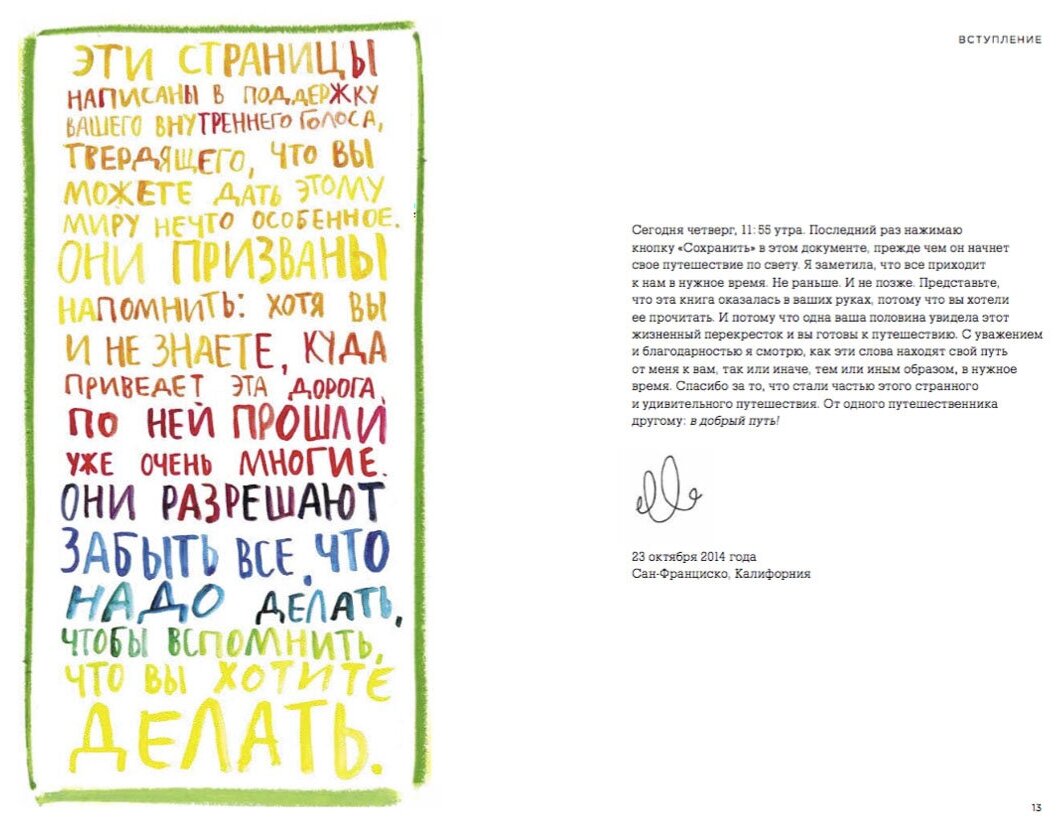 ЭТИ СТРАНИЦЫ
НАПИСАНЫ В ПОДДЕРЖКУ
ВАШЕГО ВНУТРЕННЕГО ГОЛОСА,
ТВЕРДЯЩЕГО, ЧТО ВЫ
МОЖЕТЕ ДАТЬ ЭТОМУ
МИРУ НЕЧТО ОСОБЕННОЕ.
ОНИ ПРИЗВАНЫ
НАПОМНИТЬ: ХОТЯ ВЫ
И НЕ ЗНАЕТЕ, КУДА
ПРИВЕДЕТ ЭТА ДОРОГА,
ПО НЕЙ ПРОШЛИ
УЖЕ ОЧЕНЬ МНОГИЕ.
ОНИ РАЗРЕШАЮТ
ЗАБЫТЬ ВСЕ, ЧТО
НАДО ДЕЛАТЬ,
ЧТОБЫ ВСПОМНИТЬ,
ЧТО ВЫ ХОТИТЕ
ДЕЛАТЬ.
ВСТУПЛЕНИЕ
Сегодня четверг, 11:55 утра. Последний раз нажимаю
кнопку «Сохранить» в этом документе, прежде чем он начнет
свое путешествие по свету. Я заметила, что все приходит
к нам в нужное время. Не раньше. И не позже. Представьте,
что эта книга оказалась в ваших руках, потому что вы хотели
ее прочитать. И потому что одна ваша половина увидела этот
жизненный перекресток и вы готовы к путешествию. С уважением
и благодарностью я смотрю, как эти слова находят свой путь
от меня к вам, так или иначе, тем или иным образом, в нужное
время. Спасибо за то, что стали частью этого странного
и удивительного путешествия. От одного путешественника
другому: в добрый путь!
elle
23 октября 2014 года
Сан-Франциско, Калифорния
13